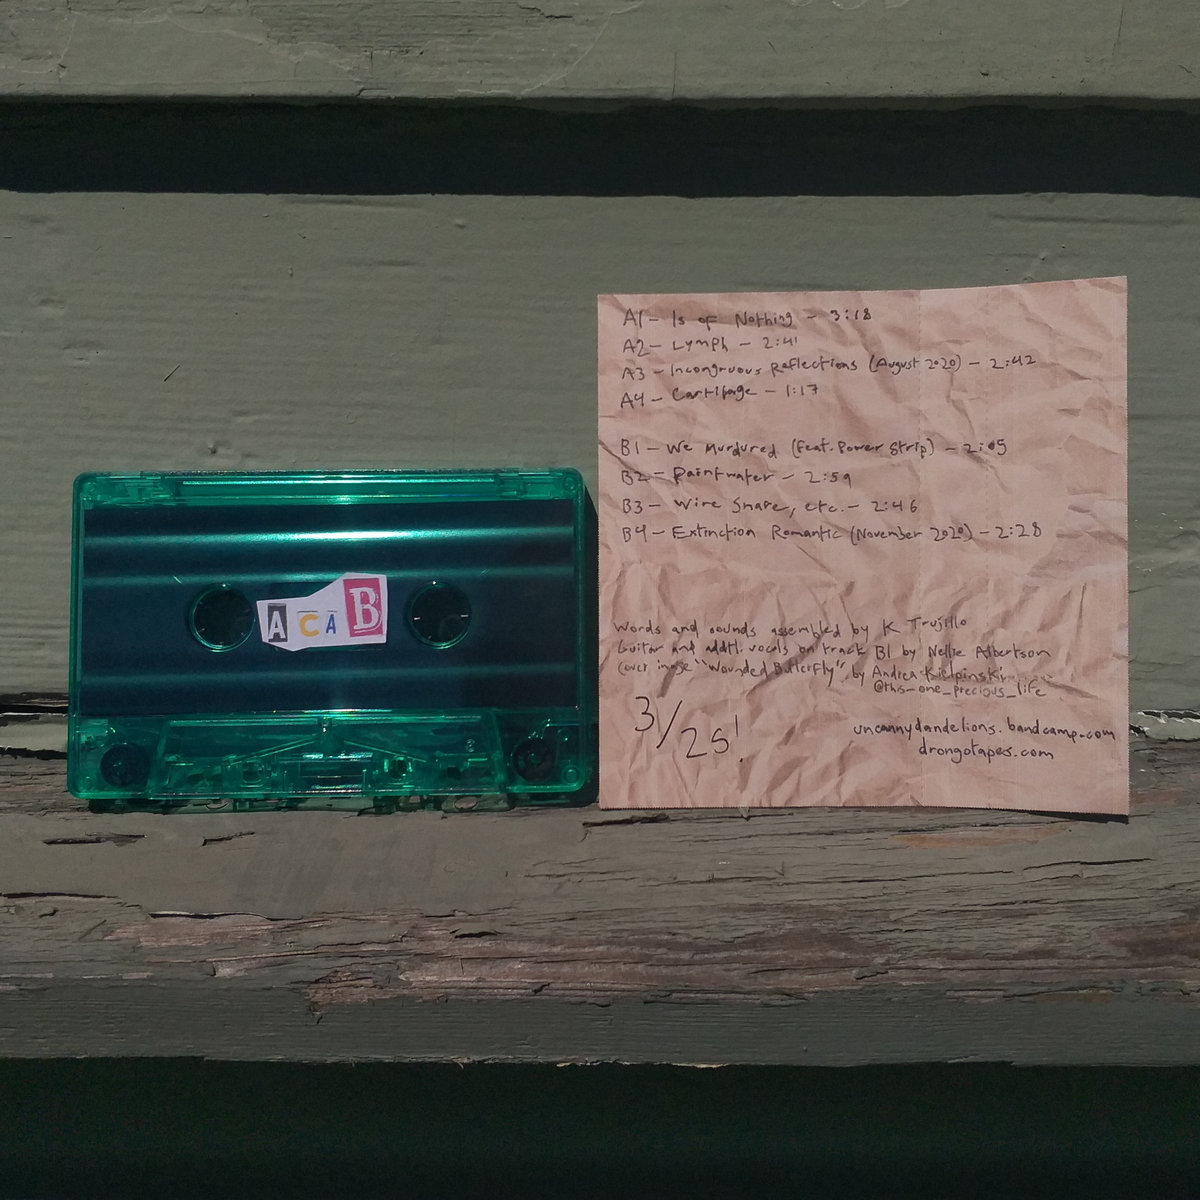 ACAB
A1 - Is of Nothing - 3:18
A2 - Lymph - 2:41
A3 - Incongruous Reflections (August 2020) - 2:42
A4 - Cartilage - 1:17
B1 - We Murdured (feat. Power Strip) - 2:05
B2 - Paintwater - 2:59
B3 - Wire Snare, etc. - 2:46
B4 - Extinction Romantic (November 2020) - 2:28
Words and sounds assembled by K Trujillo
Guitar and addtl. vocals on track B1 by Nellie Albertson
Cover image "Wounded Butterfly", by Andrea Kielpinski
@this_one_precious_life
3/25!
uncannydandelions.bandcamp.com
drongotapes.com